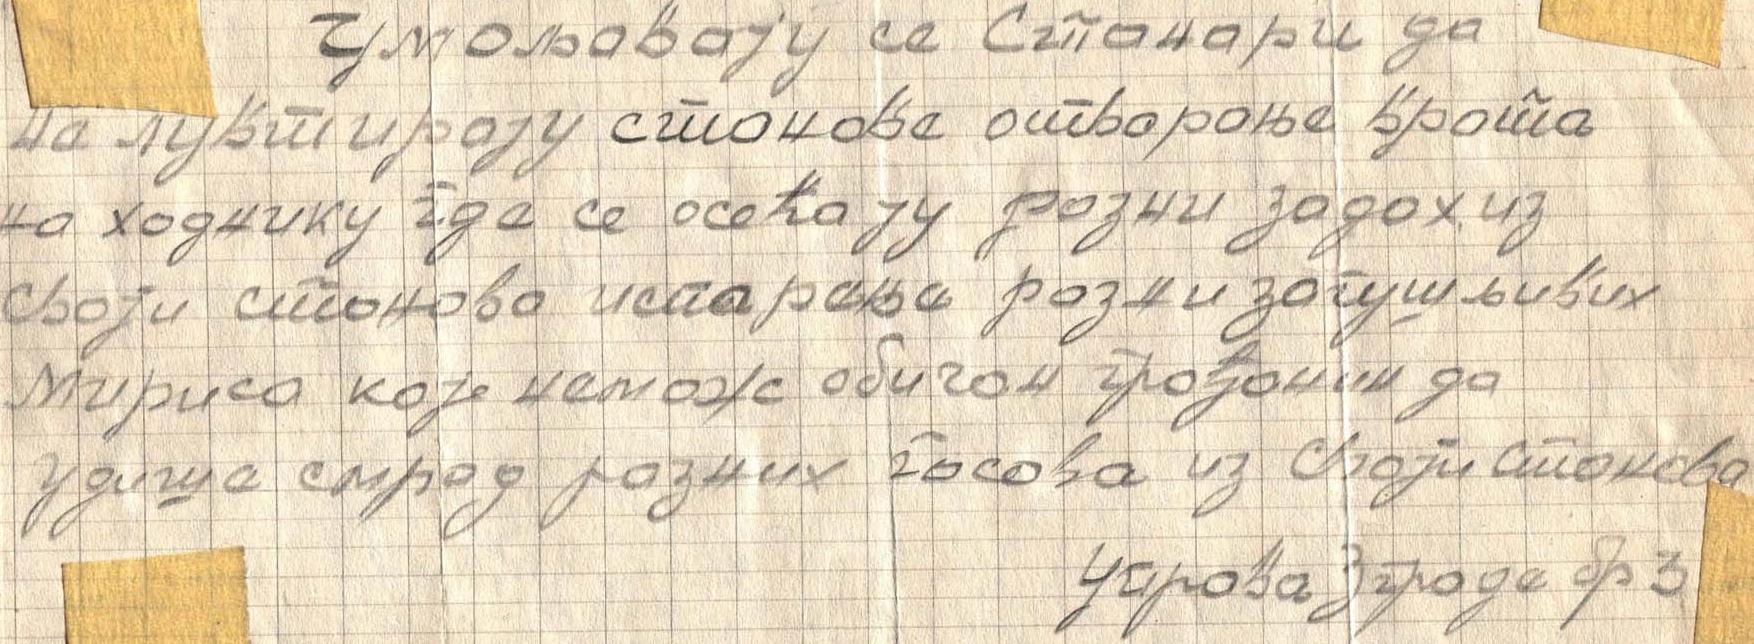 Умољавају се Станари да
не лувтирају станове отворање врата
на ходнику где се осећају разни задох из
своји станова испарење разни загушљивих
Мириса које неможе обичан грађанин да
удише смрад разних гасова из своји станова
управа зграде бр 3